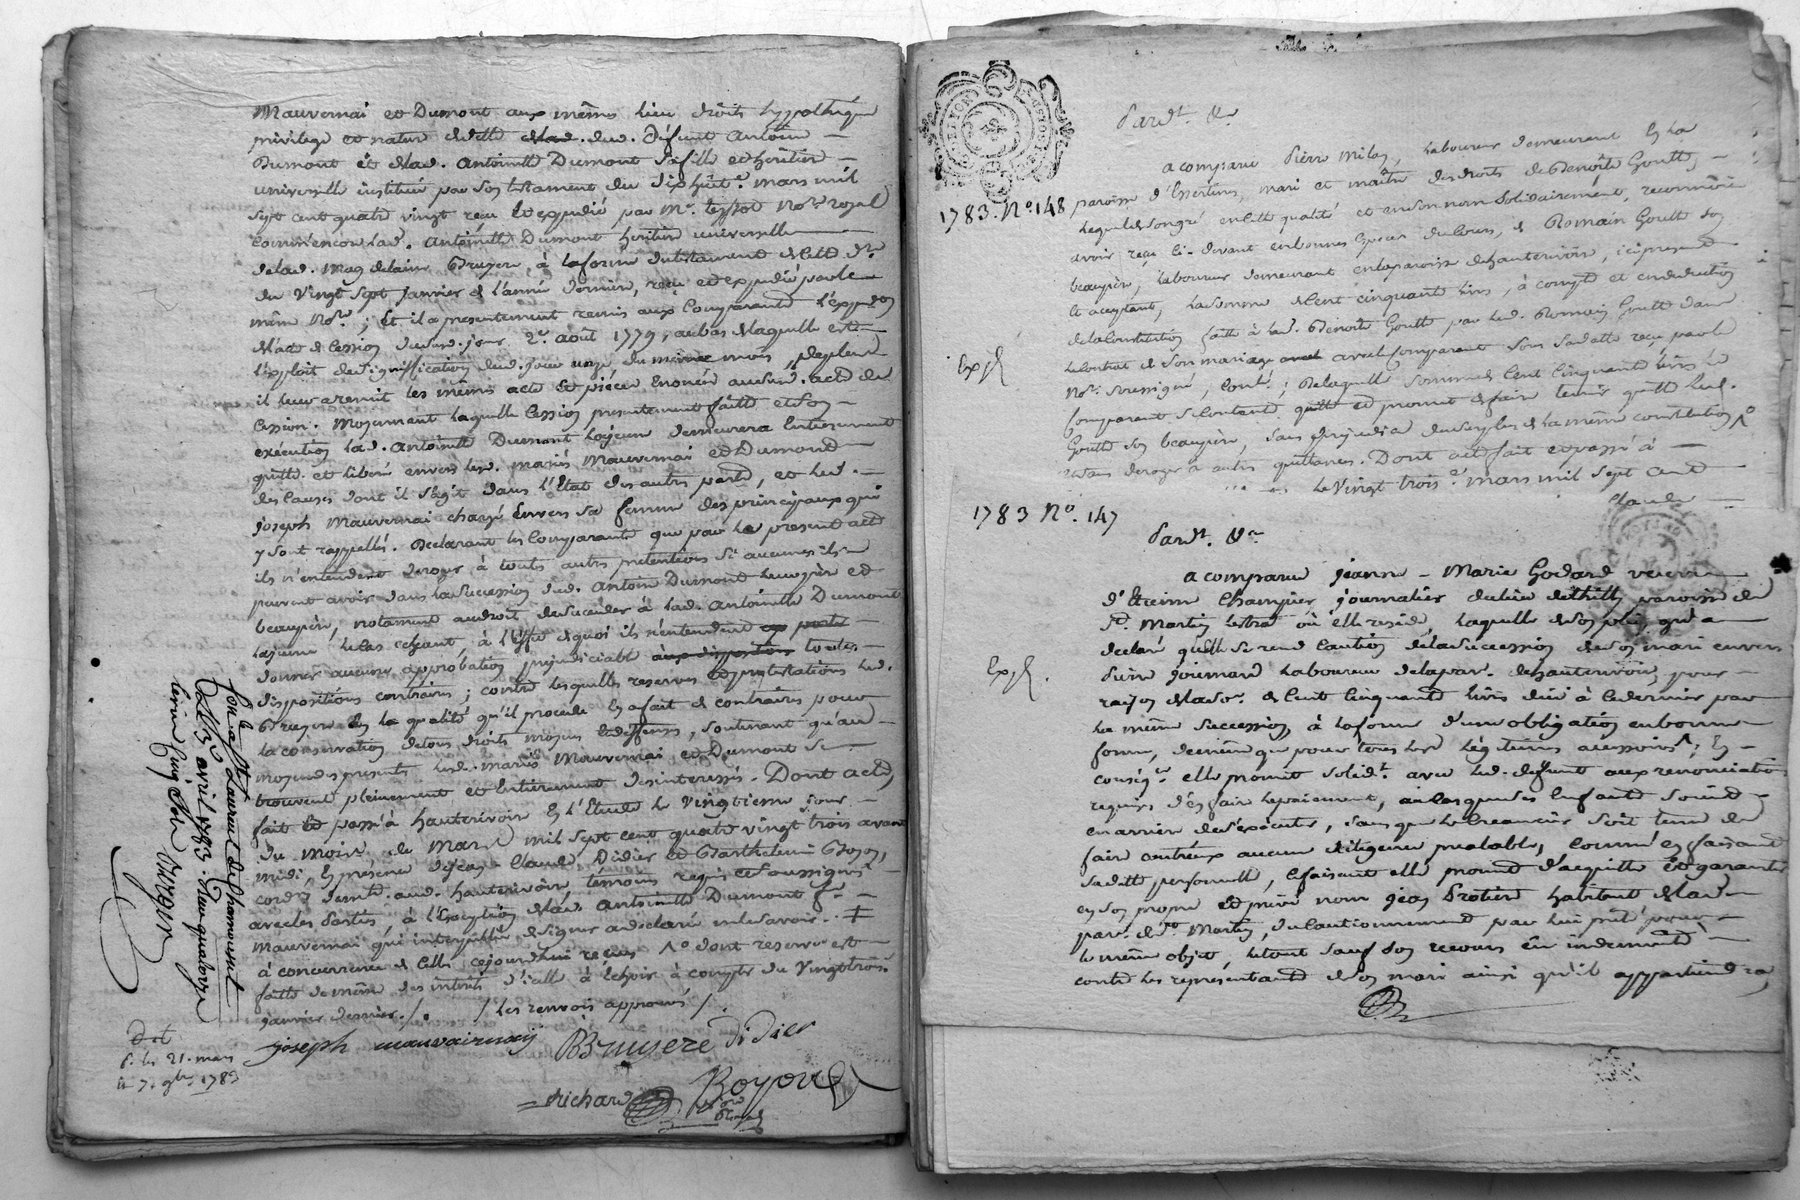 Mauvernai et Dumont aux mêmes lieu droits hypothèque
privilege et natur de dette dud. défunt Antoine
Dumont et de lad. Antoinette Dumont sa fille et héritière
universelle instituée par son testament du dixhuit mars mil
sept cent quatre vingt reçu et expedié par Me. Not. royal
comm'encore lad. Antoinette Dumont heritiere universelle
de lad. Magdelaine Bruyere à la forme du testament de cette de.
du Vingt sept Janvier de l'année derniere, reçu et expedié par le
même Nore.; Et il a presentement remis aux Comparants l'expedon
de l'acte de Cession dud. jour 2e. août 1779, au bas de laquelle est
l'exploit de signification dud. jour onze du même mois, de plus
il leur a remit les mêmes acte et pièces énoncées aud. acte de
Cession. Moyennant laquelle Cession presentement faitte et son
exécution lad. Antoinette Dumont la jeune demeurera Entierement
quitte et liberé envers les d. mariés Mauvernai et Dumond
des causes dont il s'agit dans l'Etat des autres parts, et led.
joseph Mauvernai chargé Envers sa femme des principaux qui
y sont rappellés. Declarant les Comparants que par le present acte
ils n'entendent deroger à toutes autres pretentions si aucunes ils
peuvent avoir dans la succession dud. Antoine Dumont leur père et
beaupère, notament au droit de succeder à lad. Antoinette Dumont
la jeune le cas echeant, à l'effet de quoi ils n'entendent
donner aucune approbation prejudiciable aux dispositions toutes
dispositions contraires; contre lesquelles reserves et protestations led.
Bruyere En la qualité qu'il procede En a fait de contraires pour
la conservation de tous droits moyens et deffenses, soutenant qu'au
moyen des presents les d. mariés Mauvernai et Dumont se
trouvent pleinement et Entierement desinteressés. Dont acte,
fait et passé à hauterivoire En l'Etude le Vingtieme jour
du mois de Mars mil sept cent quatre vingt trois avant
midi, En presence de Claude Didier et Barthelemi Boyon,
aud. hauterivoire, témoins requis et soussignés
avec les parties à l'Exception de lad. Antoinette Dumont fe.
Mauvernai qui interpellée de signer a declaré ne le savoir
à concurrence de celle cejourdhui reçue dont reserve est
faitte de même des intérêts d'icelle à échoir à compter du Vingt trois
janvier dernier./. /les renvois approuvés/.
joseph mauvairnaij Bruyere Didier
Richard Boyon
Con.le a St Laurent de Chamousset
avril 1783. Reçu quatorze
1783. No. 148
Pardt. &c
a comparu Pierre laboureur demeurant En la
paroisse d'Essertines, mari et maître des droits de Benoîte Goutte,
Lequel de son gré en cette qualité et en son nom solidairement, reconnoît
avoir reçu ci-devant en bonnes Especes du Cours, de Romain Goutte son
beaupère, laboureur demeurant en la paroisse de hauterivoire, ici present
et acceptant, la somme de Cent cinquante livres, à compte et en deduction
de la Constitution faitte à lad. Benoîte Goutte par led. Romain Goutte dans
le Contrat de son mariage avec le Comparant sous sa datte reçu par le
Nore. soussigné, Contlé; De laquelle somme de Cent cinquante livres le
Comparant se Contente quitte et promet de faire tenir quitte led.
Goutte son beaupère, sans prejudice du surplus de la même constitution
et sans deroger à autres quittances. Dont acte fait et passé à
le Vingt trois Mars mil sept cent
Claude
Exp.
1783 No. 147
Pardt. &c
a comparu Jeanne-Marie Godard veuve
d'Etienne Champier journalier du lieu de paroisse de
St. Martin lestra où elle reside, laquelle de son plein gré a
declaré qu'elle se rend Caution de la succession de son mari envers
Pierre laboureur de la par. de hauterivoire, pour
raison de la so. de Cent Cinquante livres due à ce dernier par
la même succession, à la forme d'une obligation en bonne
forme, de même que pour tous les legitimes accessoires; En
conseqce. elle promet solidt. avec led. defunt aux renonciations
requises d'En faire le paiement,
en arriere de s'executer, sans que le Creancier soit tenu de
faire contr'eux aucune diligence prealable, comme En faisant
sa dette personnelle, Ce faisant elle promet d'acquitter et garantir
en son propre et privé nom habitant de lad.
par. de St. Martin, du Cautionnement par lui prêté pour
le même objet, le tout sauf son recours En indemnité
contre les representants de son mari ainsi qu'il appartiendra,
Exp.